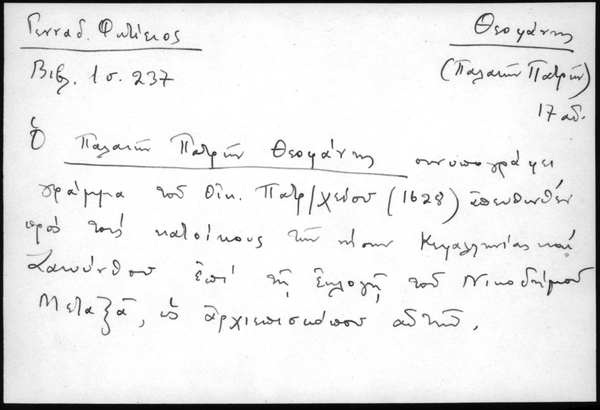 Γενναδ. Φωτίειος
Θεοφάνης
Βιβλ. 1 σ. 237
(Παλαιῶν Πατρῶν)
17 αἰ.
Ὁ Παλαιῶν Πατρῶν Θεοφάνης συνυπογράφει
γράμμα τοῦ Οἰκ. Πατρ/χείου (1628) ἀπευθυνθέν
πρός τούς κατοίκους τῶν νήσων Κεφαλληνίας καί
Ζακύνθου ἐπί τῇ ἐκλογῇ τοῦ Νικοδήμου
Μεταξᾶ, ὡς ἀρχιεπισκόπου αὐτῶν.